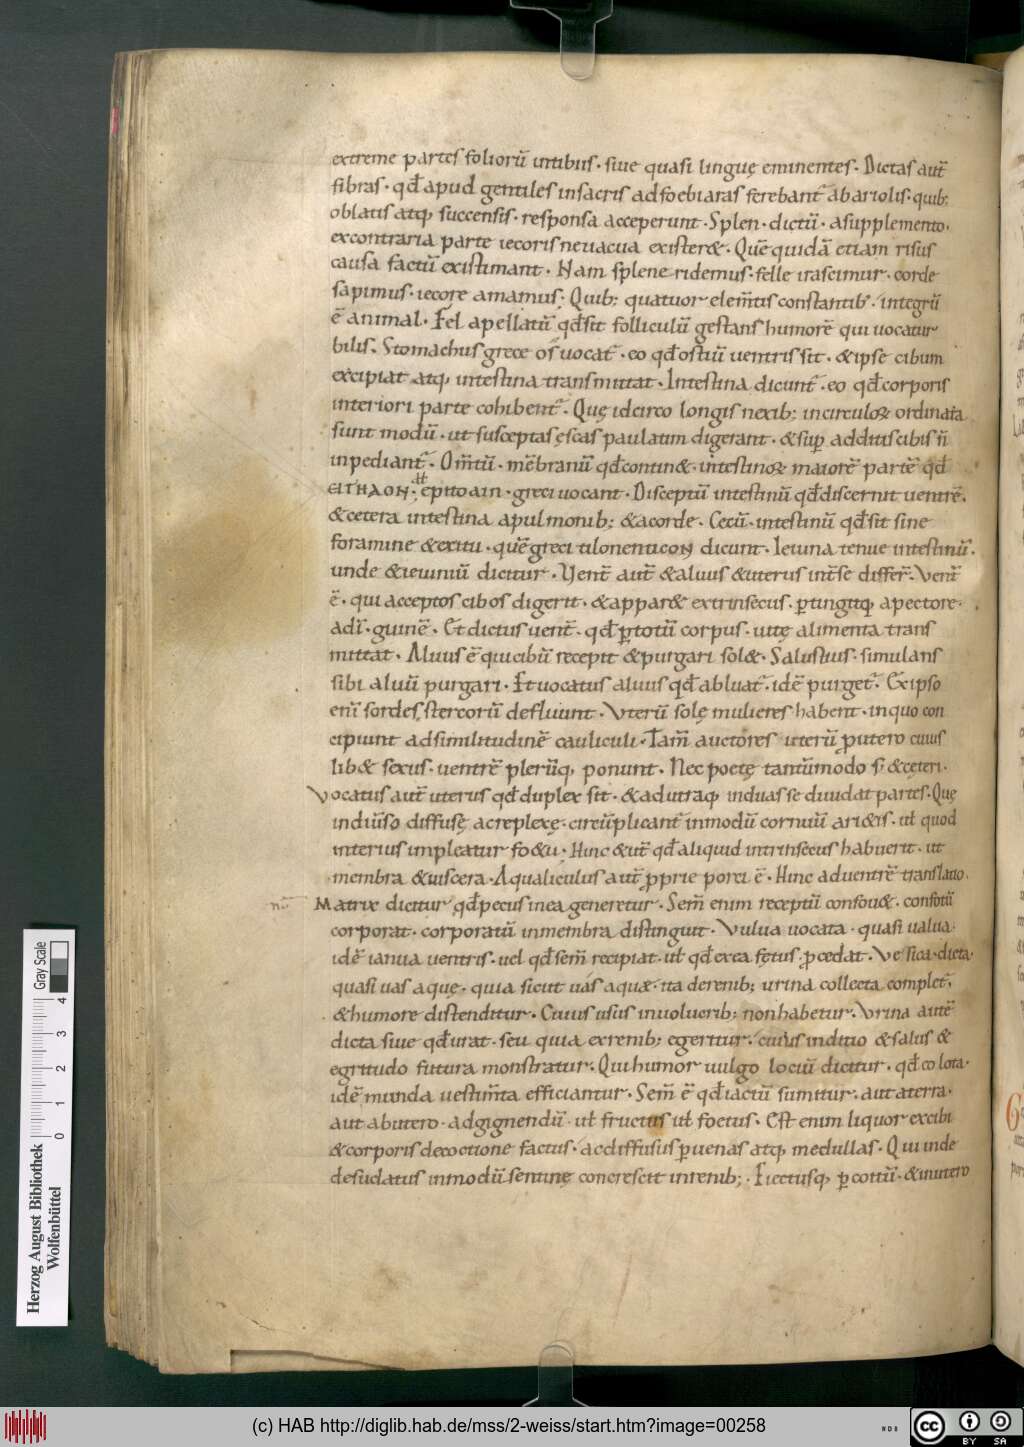 extreme partes foliorū intibus · siue quasi linguę eminentes · Dictas aut̄
fibras · qd̄ apud gentiles in sacris ad foebi aras ferebant̄ ab ariolis · quib;
oblatis atq; succensis · responsa acceperunt · Splen · dictū · a supplemento ·
ex contraria parte iecoris ne uacua exister& · Quē quidā etiam risus
causa factū existimant · Nam splene ridemus · felle irascimur · corde
sapimus · iecore amamus; Quib; quatuor elem̄tis constantib; · integrū
ē animal · Fel apellatū qd̄ sit folliculū gestans humorē qui uocatur
bilis. Stomachus grece os uocat̄ · eo qd̄ ostiū uentris sit · & ipse cibum
excipiat atq; intestina transmittat · Intestina dicunt̄ · eo qd̄ corporis
interiori parte cohibent̄ · Quę idcirco longis nexib; in circuloꝝ ordinata
sunt modū · ut susceptas ęscas paulatim digerant · & sup̄ additis cibis n̄
inpediant̄ · Om̄tū · mēbranū qd̄ contin& · intestinoꝝ maiorē partē qd̄
ΕΙΓΗΛΟΗ · epitoain · greci uocant · Disceptū intestinū qd̄ discernit uentrē ·
& cetera intestina a pulmonib; & a corde · Cecū · intestinū qd̄ sit sine
foramine & exitu · quē greci tilonenticon dicunt · Ieiuna tenue intestinū ·
unde & ieiuniū dicitur · Uent̄ aut̄ & aluus & uterus int̄ se differ̄ · Vent̄
ē · qui acceptos cibos digerit · & appar& extrinsecus · ꝑtingitq; a pectore ·
ad ī·guinē · Et dictus uent̄ · qd̄ ꝑ totū corpus · uitę alimenta trans
mittat · Aluus ē qui cibū recepit & purgari sol& · Salustius · simulans
sibi aluū purgari · Et uocatus aluus qd̄ abluat̄ · idē purget̄ · Ex ipso
eni̅ sordes stercorū defluunt · Vterū solę mulieres habent · in quo con
cipiunt ad similitudinē cauliculi · Tam̄ auctores uterū ꝓ utero cuius
lib& sexus · uentrē plerūq; ponunt · Nec poetę tantūmodo s; & cęteri ·
Vocatus aut̄ uterus qd̄ duplex sit · & ad utraq; in duas se diuidat partes · Quę
in diūso diffusę ac replexę · circūplicant̄ in modū cornuū ari&is · ul̄ quod
interius impleatur fo&u · Hinc & ut̄ qd̄ aliquid intrinsecus habuerit · ut
membra & uiscera · Aqualiculus aut̄ ꝓprie porci ē · Hinc ad uentrē translatio ·
Matrix dicitur qd̄ pecus in ea generetur · Sem̄ enim receptū confou& · confotū
corporat · corporatū in membra distinguit · Vulua uocata · quasi ualua ·
idē ianua uentris · uel qd̄ sem̄ recipiat · ul̄ qd̄ ex ea fętus ꝓcedat · Vesica · dicta ·
quasi uas aquę · quia sicut uas aquæ · ita de renib; urina collecta complet̄ ·
& humore distenditur · Cuius usus in uolucrib; non habetur · Vrina autē
dicta siue qd̄ urat · seu quia ex renib; egeritur · cuius inditio & salus &
egritudo futura monstratur · Qui humor uulgo lociū dicitur · qd̄ eo lota ·
idē munda uestim̄ta efficiantur · Sem̄ ē qd̄ iactū sumitur · aut a terra ·
aut ab utero · ad gignendū · ul̄ fructus ul̄ foetus · Est enim liquor ex cibi
& corporis decoctione factus · ac diffusus ꝑ uenas atq; medullas · Qui inde
desudatus in modū sentinę concrescit in renib; · Eiectusq; ꝑ coitū · & in utero
Gray Scale
4 3 2 1 0
Herzog August Bibliothek
Wolfenbüttel
(c) HAB http://diglib.hab.de/mss/2-weiss/start.htm?image=00258
cc BY SA